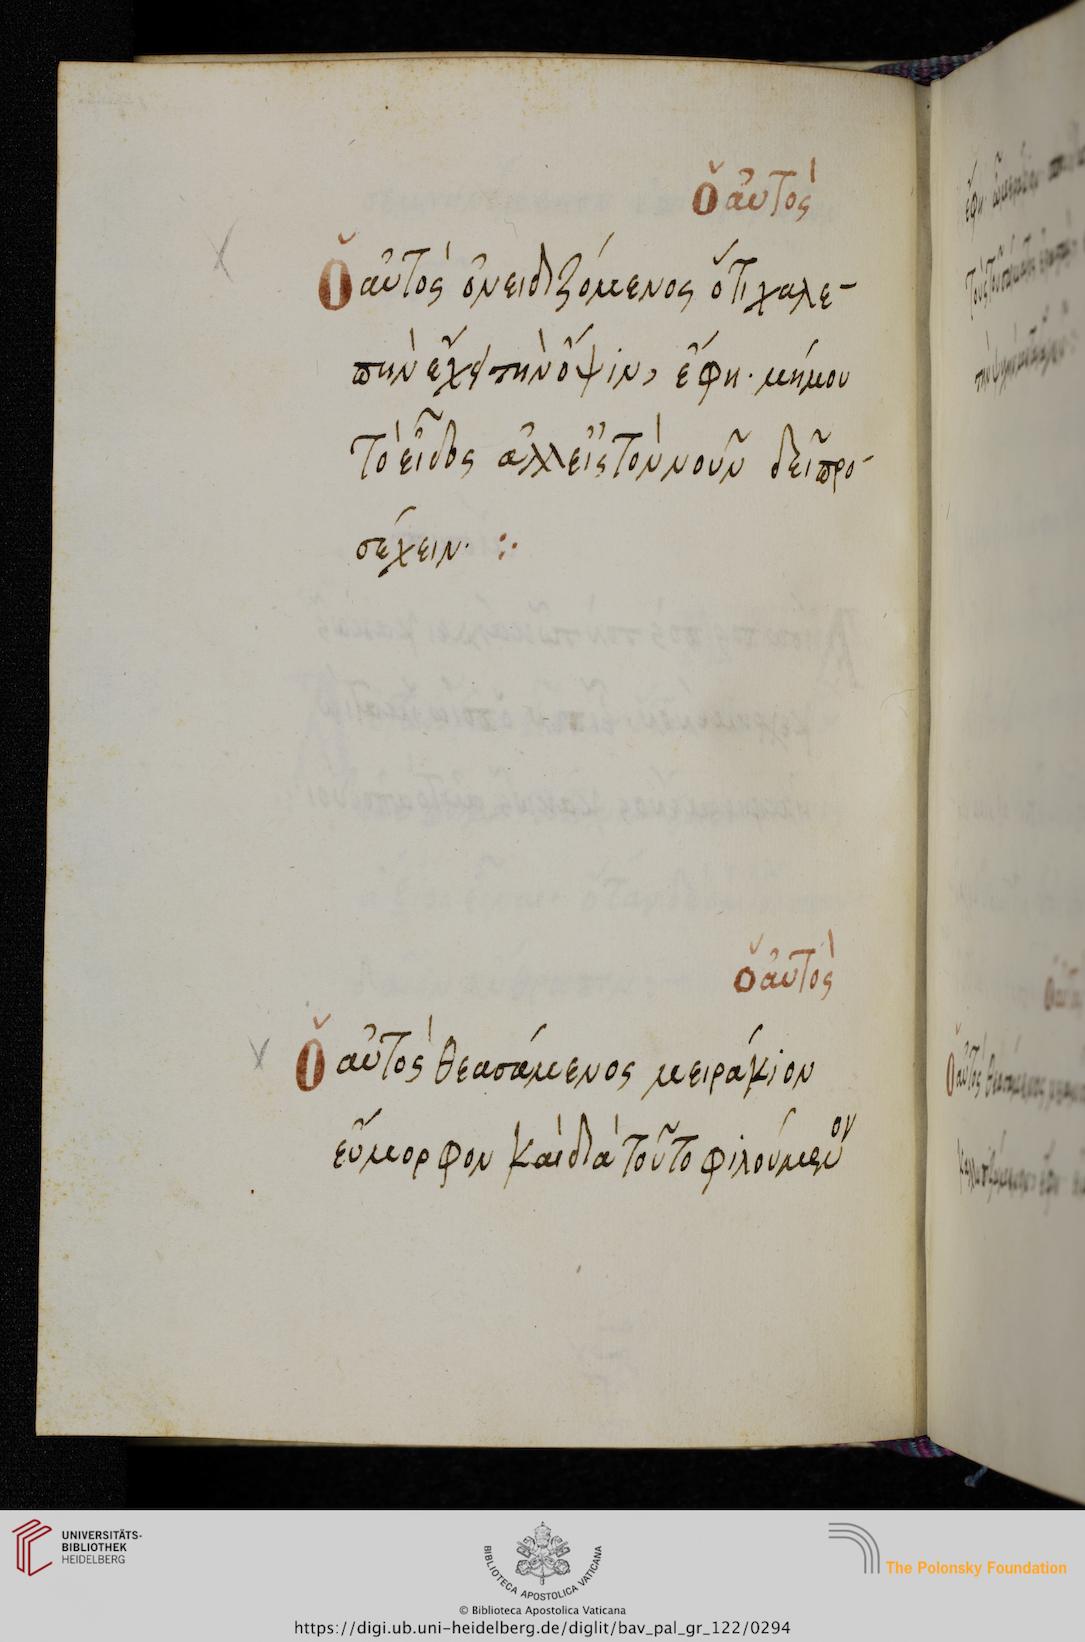 Ὁ αὐτὸς
Ὁ αὐτὸς ὀνειδιζόμενος ὅτι χαλε-
πὴν ἔχει τὴν ὄψιν, ἔφη· μή μου
τὸ εἶδος ἀλλ εἰς τὸν νοῦν δεῖ προ-
σέχειν· :·
ὁ αὐτὸς
Ὁ αὐτὸς θεασάμενος μειράκιον
εὔμορφον καὶ διὰ τοῦτο φιλούμενον
UNIVERSITÄTS-
BIBLIOTHEK
HEIDELBERG
BIBLIOTECA APOSTOLICA VATICANA
The Polonsky Foundation
© Biblioteca Apostolica Vaticana
https://digi.ub.uni-heidelberg.de/diglit/bav_pal_gr_122/0294